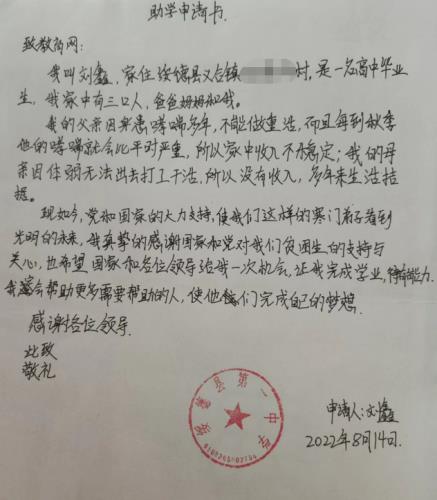 助学申请书.
致敬的网:
我叫刘鑫,家住绥德县义合镇 村,是一名高中毕业
生,我家中有三口人,爸爸妈妈和我。
我的父亲因身患哮喘多年,不能做重活,而且每到秋季
他的哮喘就会比平时严重,所以家中收入不为稳定;我的母
亲因体弱无法出去打工干活,所以没有收入,多年来生活拮
据。
现如今,党和国家的大力支持,使我们这样的寒门看到
光明的未来,我真挚的感谢国家和党对我们贫困生的支持与
关心,也希望国家和各位领导给我一次机会,让我完成学业,待有能力,
我会帮助更多需要帮助的人,使他们完成自己的梦想.
感谢各位领导.
此致
敬礼
绥德县第一中学
申请人:刘鑫
2022年8月14日.